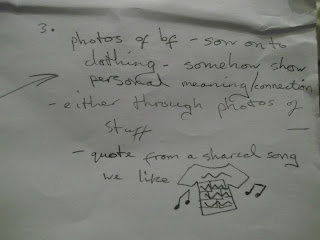 3.
photos of bf - sow on to
clothing - somehow show
personal meaning/connection
- either through photos of
stuff
- quote from a shared song
we like